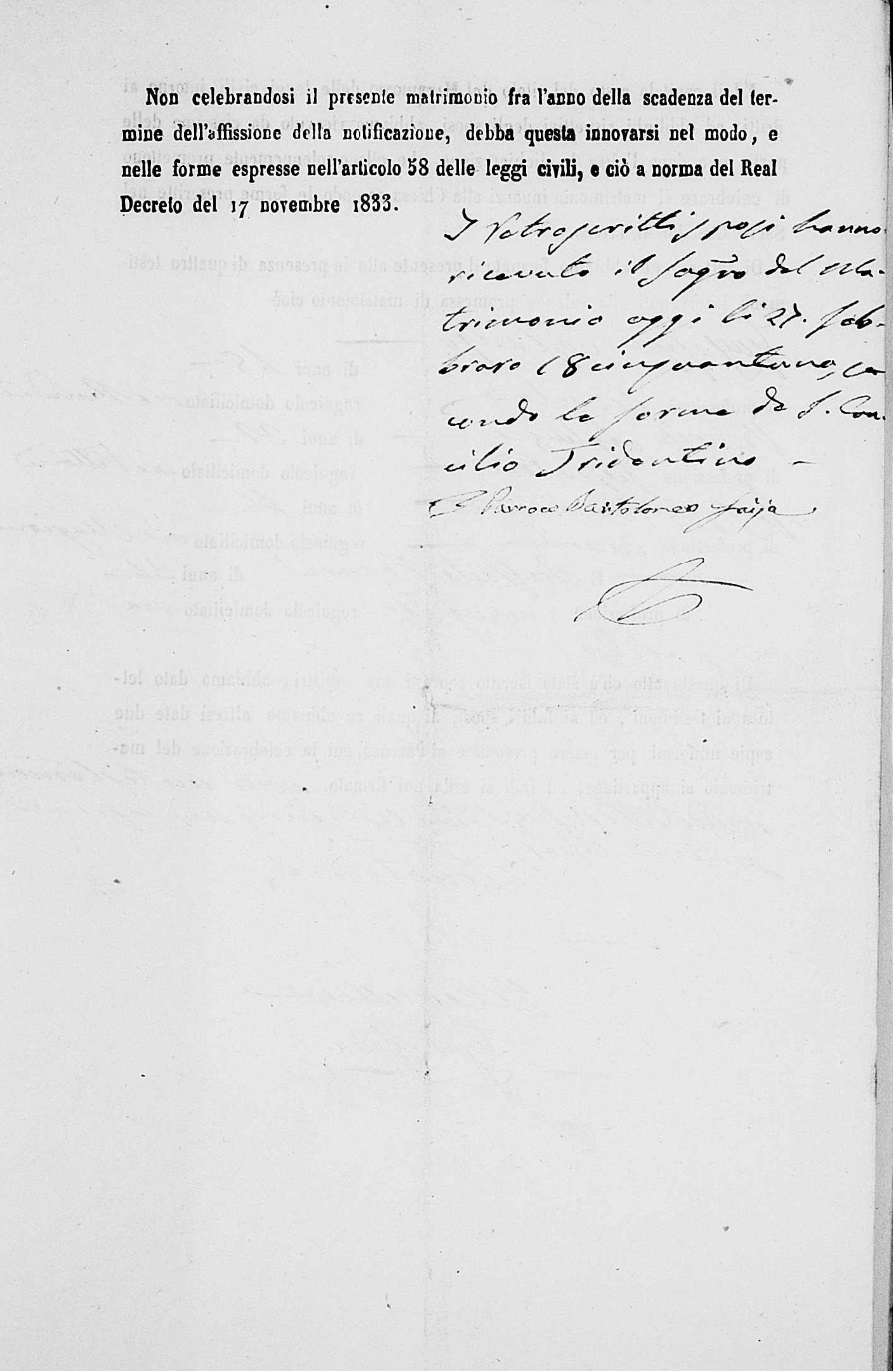 Non celebrandosi il presente matrimonio fra l'anno della scadenza del ter-
mine dell'affissione della notificazione, debba questa innovarsi nel modo, e
nelle forme espresse nell'articolo 58 delle leggi civili, e ciò a norma del Real
Decreto del 17 novembre 1833.
I retroscritti sposi hanno
ricevuto il Sagro del Ma-
trimonio oggi li 27. feb-
braro 18cinquantuno, se
condo le forme de S. Con-
cilio Tridentino –
Parroco Bartolomeo